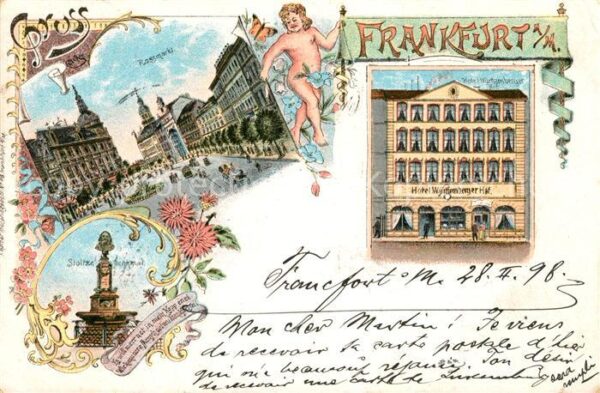 Gruss
aus
Rossmarkt
FRANKFURT A/M.
Hotel Württemberger
Hotel Württemberger Hof.
Stoltze Denkmal
Francfort s/M. 28. II. 98.
Mon cher Martin! Je viens
de recevoir ta carte postale d'hier
qui m'a beaucoup réjoui. Ton désir
de recevoir une carte de Luxembourg
sera
rempli